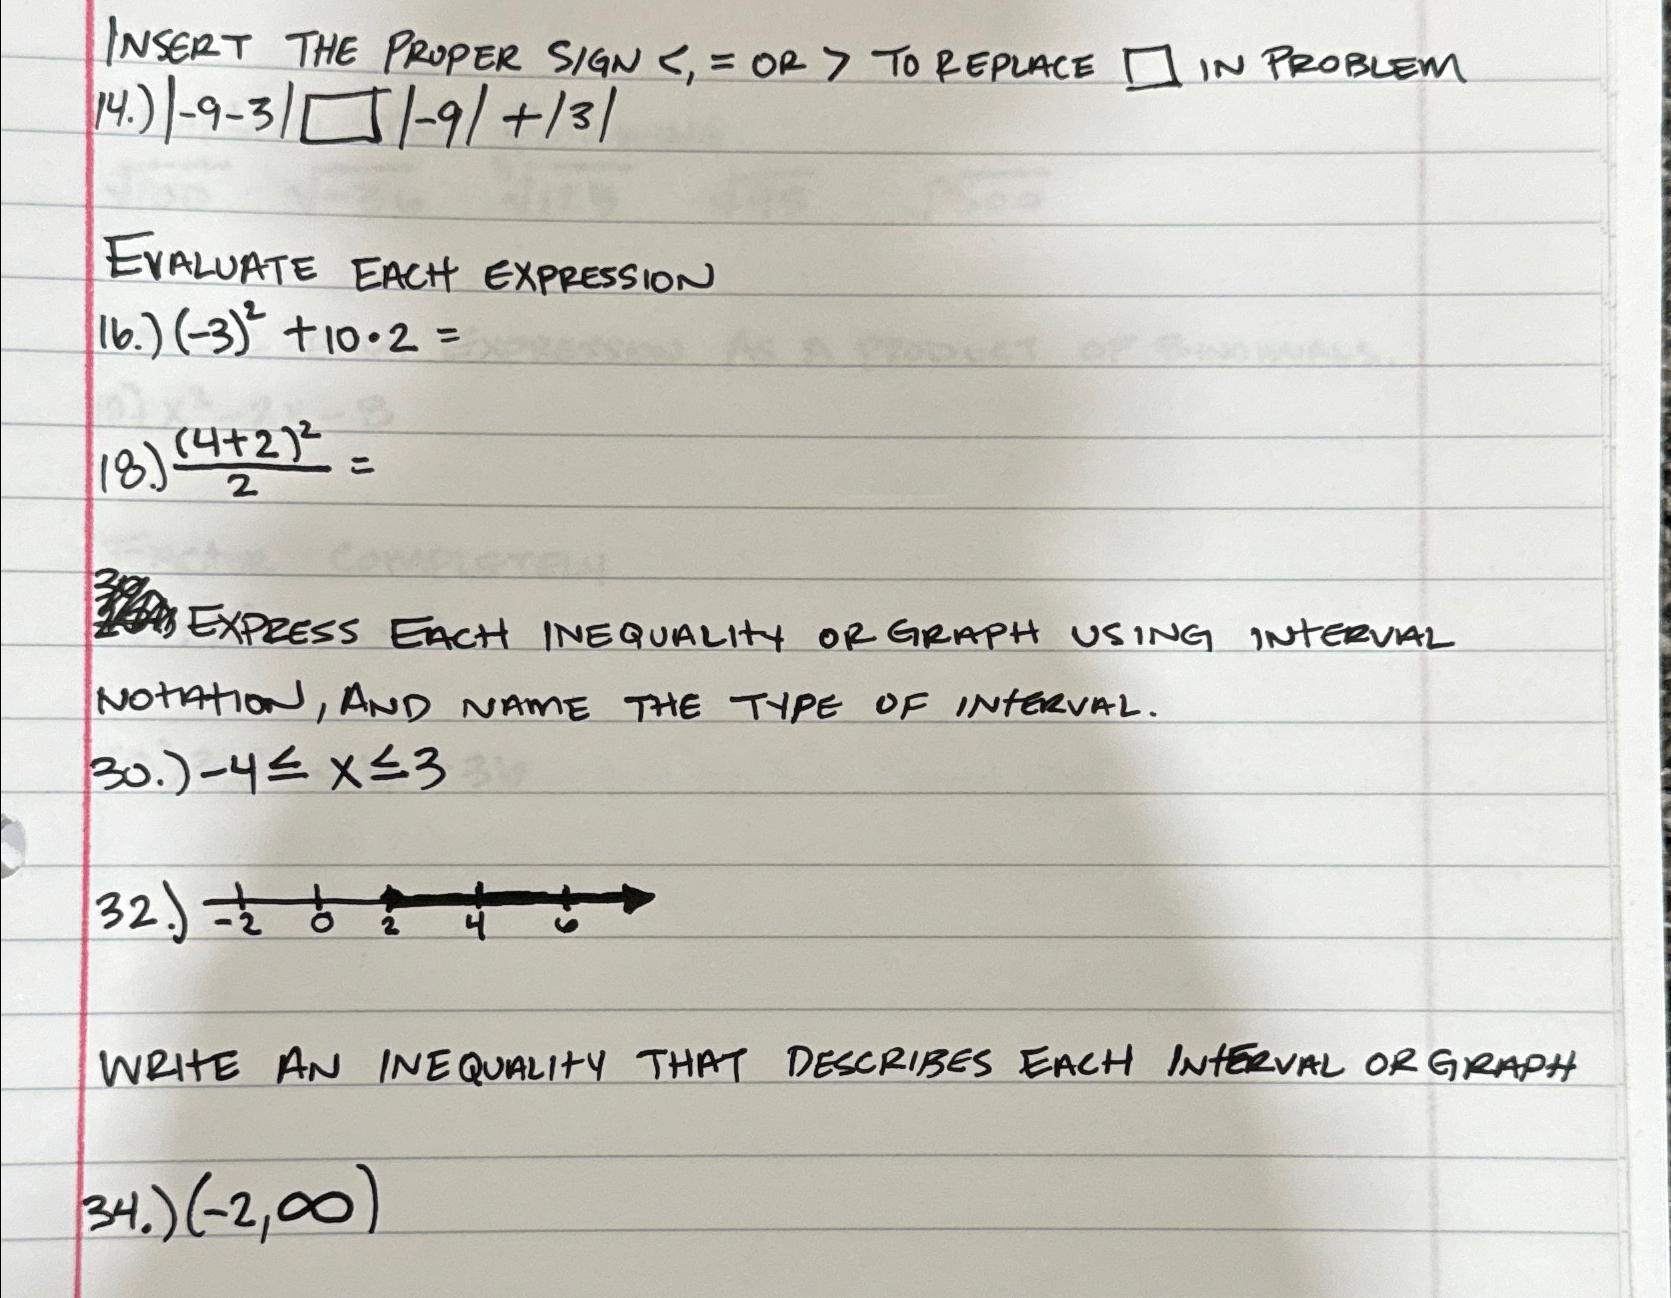 INSERT THE PROPER SIGN <, = OR > TO REPLACE □ IN PROBLEM
14.) |-9-3| □ |-9| + |3|
EVALUATE EACH EXPRESSION
16.) (-3)² + 10 • 2 =
18.) (4+2)²/2 =
EXPRESS EACH INEQUALITY OR GRAPH USING INTERVIAL
NOTATION, AND NAME THE TYPE OF INTERVAL.
30.) -4 ≤ x ≤ 3
32.) -2 0 2 4 6
WRITE AN INEQUALITY THAT DESCRIBES EACH INTERVAL OR GRAPH
34.) (-2, ∞)